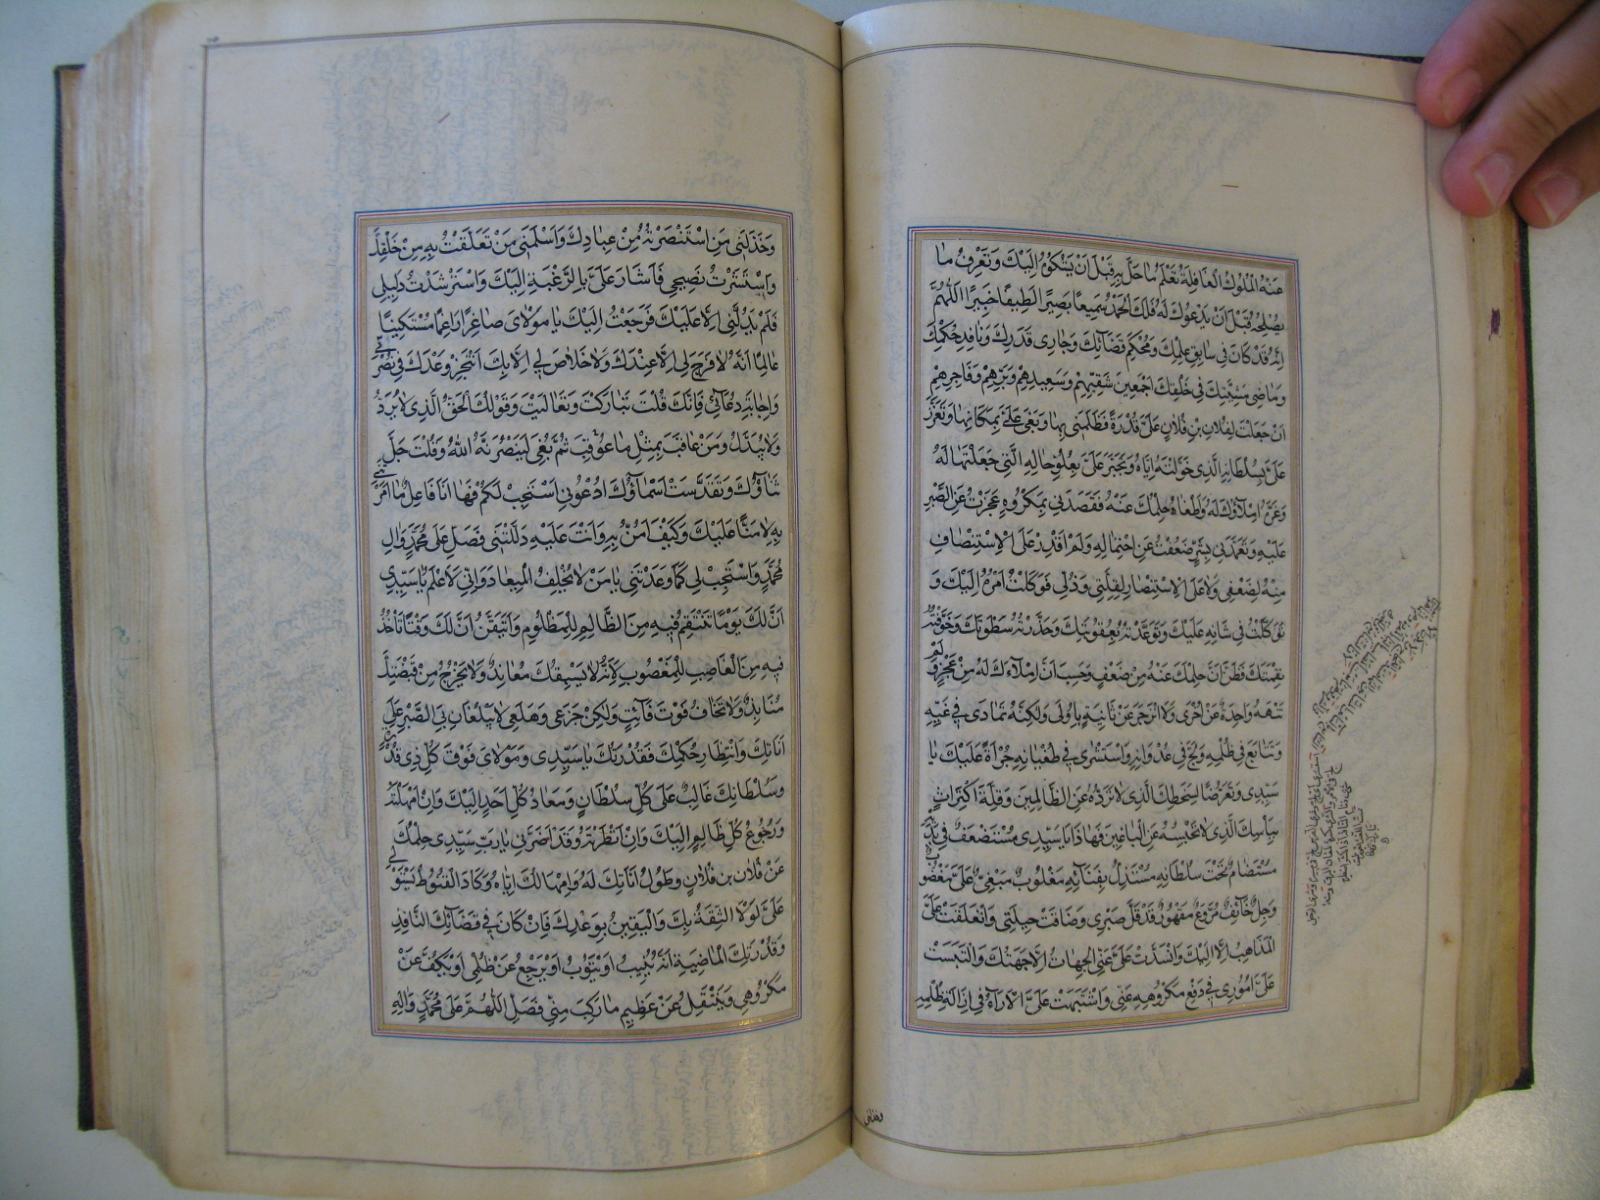 عَنْهُ الْمُلُوكُ الْغَافِلَةُ تَعْلَمُ مَا حَلَّ بِهِ قَبْلَ أَنْ يَشْكُوهُ اِلَيْكَ وَتَعْرِفُ مَا
يُصْلِحُهُ قَبْلَ اَنْ يَدْعُوَكَ لَهُ فَلَكَ الْحَمْدُ سَمِيعًا بَصِيرًا لَطِيفًا خَبِيرًا اَللّهُمَّ
اِنَّهُ قَدْ كَانَ فِي سَابِقِ عِلْمِكَ وَمُحْكَمِ قَضَآئِكَ وَجَارِى قَدَرِكَ وَنَافِذِ حُكْمِكَ
وَمَاضِى مَشِيَّتِكَ فِي خَلْقِكَ اَجْمَعِينَ شَقِيِّهِمْ وَسَعِيدِهِمْ وَبَرِّهِمْ وَفَاجِرِهِمْ
اَنْ جَعَلْتَ لِفُلَانِ بْنِ فُلَانٍ عَلَىَّ قُدْرَةً فَظَلَمَنِى بِهَا وَبَغَى عَلَىَّ بِمَكَانِهَا وَتَعَزَّزَ
عَلَىَّ بِسُلْطَانِهِ الَّذِى خَوَّلْتَهُ اِيَّاهُ وَتَجَبَّرَ عَلَىَّ بِعُلُوِّ حَالِهِ الَّتِى جَعَلْتَهَا لَهُ
وَغَرَّهُ اِمْلَآؤُكَ لَهُ وَاَطْغَاهُ حِلْمُكَ عَنْهُ فَقَصَدَنِى بِمَكْرُوهٍ عَجَزْتُ عَنِ الصَّبْرِ
عَلَيْهِ وَتَعَمَّدَنِى بِشَرٍّ ضَعُفْتُ عَنِ احْتِمَالِهِ وَلَمْ اَقْدِرْ عَلَى الْاِسْتِنْصَافِ
مِنْهُ لِضَعْفِى وَلَا عَلَى الْاِسْتِنْصَارِ لِقِلَّتِى وَذُلِّى فَوَكَلْتُ اَمْرَهُ اِلَيْكَ وَ
تَوَكَّلْتُ فِي شَانِهِ عَلَيْكَ وَتَوَعَّدْتُهُ بِعُقُوبَتِكَ وَحَذَّرْتُهُ سَطْوَتَكَ وَخَوَّفْتُهُ
نِقْمَتَكَ فَظَنَّ اَنَّ حِلْمَكَ عَنْهُ مِنْ ضَعْفٍ وَحَسِبَ اَنَّ اِمْلَآءَكَ لَهُ مِنْ عَجْزٍ وَلَمْ
تَنْهَهُ وَاحِدَةٌ عَنْ اُخْرَى وَلَا انْزَجَرَ عَنْ ثَانِيَةٍ بِاُولَى وَلٰكِنَّهُ تَمَادَى فِي غَيِّهِ
وَتَتَابَعَ فِي ظُلْمِهِ وَلَجَّ فِي عُدْوَانِهِ وَاسْتَشْرَى فِي طُغْيَانِهِ جُرْأَةً عَلَيْكَ يَا
سَيِّدِى وَتَعَرُّضًا لِسَخَطِكَ الَّذِى لَا تَرُدُّهُ عَنِ الظَّالِمِينَ وَقِلَّةَ اكْتِرَاثٍ
بِبَأْسِكَ الَّذِى لَا تَحْبِسُهُ عَنِ الْبَاغِينَ فَهَا اَنَا ذَا يَا سَيِّدِى مُسْتَضْعَفٌ فِي يَدَيْهِ
مُسْتَضَامٌ تَحْتَ سُلْطَانِهِ مُسْتَذَلٌّ بِفِنَآئِهِ مَغْلُوبٌ مَبْغِىٌّ عَلَىَّ مَغْضُوبٌ
وَجِلٌ خَآئِفٌ مُرَوَّعٌ مَقْهُورٌ قَدْ قَلَّ صَبْرِى وَضَاقَتْ حِيلَتِى وَانْغَلَقَتْ عَلَىَّ
الْمَذَاهِبُ اِلَّا اِلَيْكَ وَانْسَدَّتْ عَلَىَّ عَنِّى الْجِهَاتُ اِلَّا جِهَتُكَ وَالْتَبَسَتْ
عَلَىَّ اُمُورِى فِي دَفْعِ مَكْرُوهِهِ عَنِّى وَاشْتَبَهَتْ عَلَىَّ الْآرَآءُ فِي اِزَالَةِ ظُلْمِهِ
وَخَذَلَنِى مَنِ اسْتَنْصَرْتُهُ مِنْ عِبَادِكَ وَاَسْلَمَنِى مَنْ تَعَلَّقْتُ بِهِ مِنْ خَلْقِكَ
وَاسْتَشَرْتُ نَصِيحِى فَاَشَارَ عَلَىَّ بِالرَّغْبَةِ اِلَيْكَ وَاسْتَرْشَدْتُ دَلِيلِى
فَلَمْ يَدُلَّنِى اِلَّا عَلَيْكَ فَرَجَعْتُ اِلَيْكَ يَا مَوْلَاىَ صَاغِرًا رَاغِمًا مُسْتَكِينًا
عَالِمًا اَنَّهُ لَا فَرَجَ لِى اِلَّا عِنْدَكَ وَلَا خَلَاصَ لِى اِلَّا بِكَ اَنْتَجِزُ وَعْدَكَ فِي نُصْرَتِى
وَاِجَابَةِ دُعَآئِى فَاِنَّكَ قُلْتَ تَبَارَكْتَ وَتَعَالَيْتَ وَقَوْلُكَ الْحَقُّ الَّذِى لَا يُرَدُّ
وَلَا يُبَدَّلُ وَمَنْ عَاقَبَ بِمِثْلِ مَا عُوقِبَ ثُمَّ بُغِىَ لَيَنْصُرَنَّهُ اللّٰهُ وَقُلْتَ جَلَّ
ثَنَآؤُكَ وَتَقَدَّسَتْ اَسْمَآؤُكَ اُدْعُونِى اَسْتَجِبْ لَكُمْ فَهَا اَنَا فَاعِلٌ مَا اَمَرْتَنِى
بِهِ لَا مَنًّا عَلَيْكَ وَكَيْفَ اَمُنُّ بِهِ وَاَنْتَ عَلَيْهِ دَلَلْتَنِى فَصَلِّ عَلَى مُحَمَّدٍ وَآلِ
مُحَمَّدٍ وَاسْتَجِبْ لِى كَمَا وَعَدْتَنِى يَا مَنْ لَا يُخْلِفُ الْمِيعَادَ وَاِنِّى لَاَعْلَمُ يَا سَيِّدِى
اَنَّ لَكَ يَوْمًا تَنْتَقِمُ فِيهِ مِنَ الظَّالِمِ لِلْمَظْلُومِ وَاَتَيَقَّنُ اَنَّ لَكَ وَقْتًا تَأْخُذُ
فِيهِ مِنَ الْغَاصِبِ لِلْمَغْصُوبِ لِاَنَّهُ لَا يَسْبِقُكَ مُعَانِدٌ وَلَا يَخْرُجُ مِنْ قَبْضَتِكَ
مُنَابِذٌ وَلَا تَخَافُ فَوْتَ فَآئِتٍ وَلٰكِنْ جَزَعِى وَهَلَعِى لَا يَبْلُغَانِ بِىَ الصَّبْرَ عَلَى
اَنَاتِكَ وَانْتِظَارِ حُكْمِكَ فَقُدْرَتُكَ يَا سَيِّدِى وَمَوْلَاىَ فَوْقَ كُلِّ ذِى قُدْرَةٍ
وَسُلْطَانُكَ غَالِبٌ عَلَى كُلِّ سُلْطَانٍ وَمَعَادُ كُلِّ اَحَدٍ اِلَيْكَ وَاِنْ اَمْهَلْتَهُ
وَرُجُوعُ كُلِّ ظَالِمٍ اِلَيْكَ وَاِنْ اَنْظَرْتَهُ وَقَدْ اَضَرَّنِى يَا رَبِّ سَيِّدِى حِلْمُكَ
عَنْ فُلَانِ بْنِ فُلَانٍ وَطُولُ اَنَاتِكَ لَهُ وَاِمْهَالُكَ اِيَّاهُ وَكَادَ الْقُنُوطُ يَسْتَوْلِى
عَلَىَّ لَوْلَا الثِّقَةُ بِكَ وَالْيَقِينُ بِوَعْدِكَ فَاِنْ كَانَ فِي قَضَآئِكَ النَّافِذِ
وَقُدْرَتِكَ الْمَاضِيَةِ اَنَّهُ يُنِيبُ اَوْ يَتُوبُ اَوْ يَرْجِعُ عَنْ ظُلْمِى اَوْ يَكُفُّ عَنْ
مَكْرُوهِى وَيَنْتَقِلُ عَنْ عَظِيمِ مَا رَكِبَ مِنِّى فَصَلِّ اللّٰهُمَّ عَلَى مُحَمَّدٍ وَآلِهِ